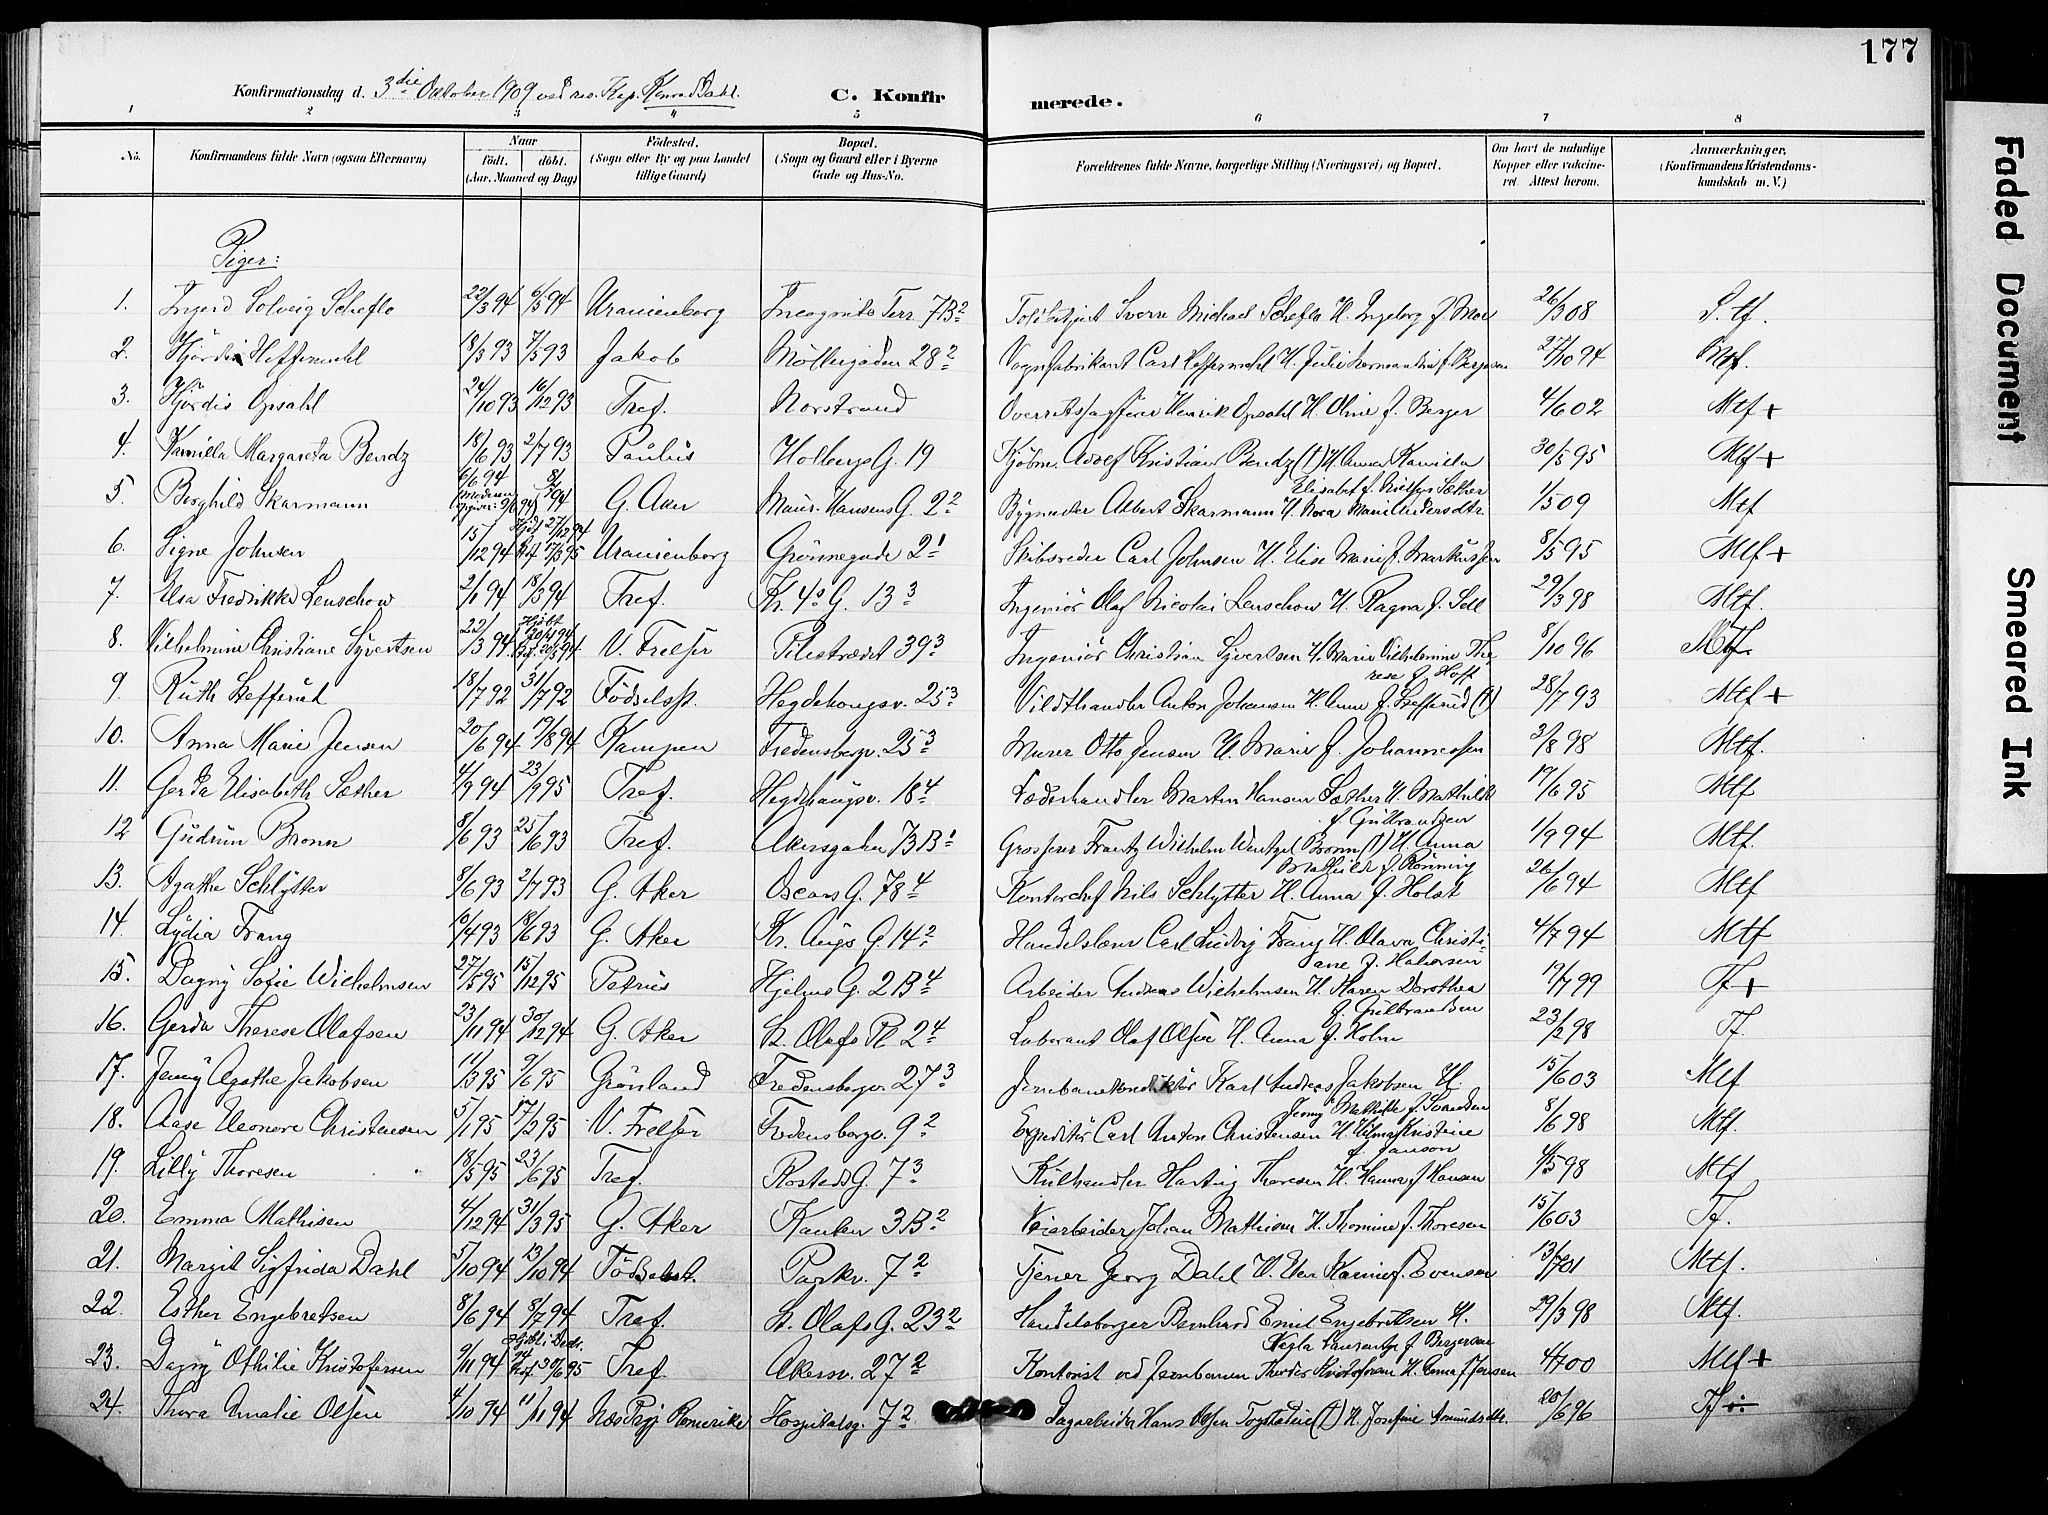 177
Konfirmationsdag d. 3die Oktober 1909 ved res. Kap. Konrad Dahl. C. Konfirmerede.
1 2 3 4 5 6 7 8
No. Konfirmandens fulde Navn (ogsaa Efternavn) Naar født. døbt. (Aar, Maaned og Dag) Fødested. (Sogn eller By og paa Landet tillige Gaard) Bopæl. (Sogn og Gaard eller i Byerne Gade og Hus-No. Forældrenes fulde Navne, borgerlige Stilling (Næringsvei) og Bopæl. Om havt de naturlige Kopper eller vaccineret. Attest herom. Anmærkninger, (Konfirmandens Kristendomskundskab m. V.)
Piger:
1. Ingerd Solveig Scheflo 22/3 94 6/5 94 Uranienborg Incognito Terr. 7B2 Toldbetjent Sverre Michael Scheflo H. Ingeborg f. Moe 26/3 08 S.tf.
2. Hjördis Heffermehl 18/3 93 7/5 93 Jakob Möllergaden 28 2 Vognfabrikant Carl Heffermehl H. Julie Hermandine f. Bergersen 27/10 94 Mtf.
3. Hjördis Opsahl 24/10 93 16/12 93 Tref. Norstrand Overretssagfører Henrik Opsahl H. Oline f. Berger 4/6 02 Mtf +
4. Kamilla Margareta Bendz 18/6 93 2/7 93 Paulus Holbergs G. 19 Kjøbm. Adolf Kristian Bendz (†) H. Anna Kamilla 30/5 95 Mtf +
Elisabet f. Nielsen Sæther
5. Borghild Skarmann 6/6 94 8/7 94 G. Aker Maur. Hansens G. 2 2 Bygmester Albert Skarmann H. Nora Marie Andersdtr. 1/5 09 Mtf
6. Signe Johnsen 15/12 94 Hjdt 27/12 94 Bkf. 17/3 95 Uranienborg Grönnegade 2 1 Skibsreder Carl Johnsen H. Elise Marie f. Markussen 8/5 95 Mtf +
7. Elsa Fredrikke Lenschow 2/1 94 18/3 94 Tref. Kr. 4s G. 13 3 Ingeniör Olaf Nicolai Lenschow H. Ragna f. Sell 29/3 98 Mtf.
8. Vilhelmine Christiane Syvertsen 22/3 94 V. Frelser Pilestrædet 39 3 Ingeniör Christian Syvertsen H. Marie Vilhelmine The 8/10 96 Mtf.
rese f. Hoff
9. Ruth Lefferud 18/7 92 31/7 92 Födselsst. Hegdehougsv. 25 3 Vildthandler Anton Johansen H. Anna f. Lefferud (†) 28/7 93 Mtf +
10. Anna Marie Jensen 20/6 94 19/8 94 Kampen Fredensborgv. 25 3 Murer Otto Jensen H. Marie f. Johannessen 3/8 98 Mtf.
11. Gerda Elisabeth Sæther 4/9 94 23/9 95 Tref. Hegdehaugsv. 18 4 Læderhandler Martin Hansen Sæther H. Mathilde 19/6 95 Mtf
f. Gulbrandsen
12 Gudrun Bronn 8/6 93 25/6 93 Tref. Akersgaden 73B 1 Grosserer Frantz Wilhelm Wentzel Bronn (†) H. Anna 1/9 94 Mtf.
Mathilde f. Rönning
13. Agathe Schlytter 8/6 93 2/7 93 G. Aker Oscars G. 78 4 Kontorchef Nils Schlytter H. Anna f. Holst 26/6 94 Mtf
14. Lydia Frang 10/4 93 18/6 93 G. Aker Kr. Augs G. 14 2 Handelslær Carl Ludvig Frang H. Olava Christi- 4/7 94 Mtf
ane f. Halvorsen
15. Dagny Sofie Wilhelmsen 27/5 95 15/12 95 Petrus Hjelms G. 2 B 4 Arbeider Andreas Wilhelmsen H. Karen Dorothea 19/7 99 Tf +
f. Gulbrandsen
16. Gerda Therese Olafsen 23/11 94 30/12 94 G. Aker St. Olafs Pl. 2 4 Laborant Olaf Olsen H. Anna f. Holm 23/2 98 Tf.
17. Jenny Agathe Jakobsen 11/3 95 9/6 95 Grönland Fredensborgv. 27 3 Jernbanekonduktör Karl Andreas Jakobsen H. 15/6 03 Mtf
Jenny Mathilde f. Svendsen
18. Aase Eleonore Christensen 5/1 95 17/2 95 V. Frelser Fredensborgv. 9 2 Expeditör Carl Anton Christensen H. Hilma Kristine 8/6 98 Mtf.
f. Janson
19. Lilly Thoresen 18/5 95 23/6 95 Tref. Rosteds G. 7 3 Kulhandler Hartvig Thoresen H. Hanna f. Hansen 4/5 98 Mtf
20. Emma Mathisen 4/12 94 31/3 95 G. Aker Kanten 3 B 2 Veiarbeider Johan Mathisen H. Thomine f. Thoresen 15/6 03 Tf.
21. Margit Sigfrida Dahl 5/10 94 13/10 94 Födselsst. Parkv. 7 2 Tjener Georg Dahl H. Elen Karine f. Evensen 13/7 01 Mtf.
22. Esther Engebretsen 8/6 94 8/7 94 Tref. St. Olafs G. 23 2 Handelsborger Bernhard Emil Engebretsen H. 29/3 98 Mtf.
23. Dagny Othilie Kristofersen 9/11 94 30/6 95 Tref. Akersv. 27 2 Kontorist ved Jernbanen Theodor Kristofersen H. Anna f. Jensen 4/7 00 Mtf +
24. Thora Amalie Olsen 4/10 94 11/11 94 Næs Prgj Romerike Hospitalsg. 7 2 Dagarbeider Hans Olsen (†) H. Josefine Amundsdtr. 20/6 96 Tf
Faded Document
Smeared Ink